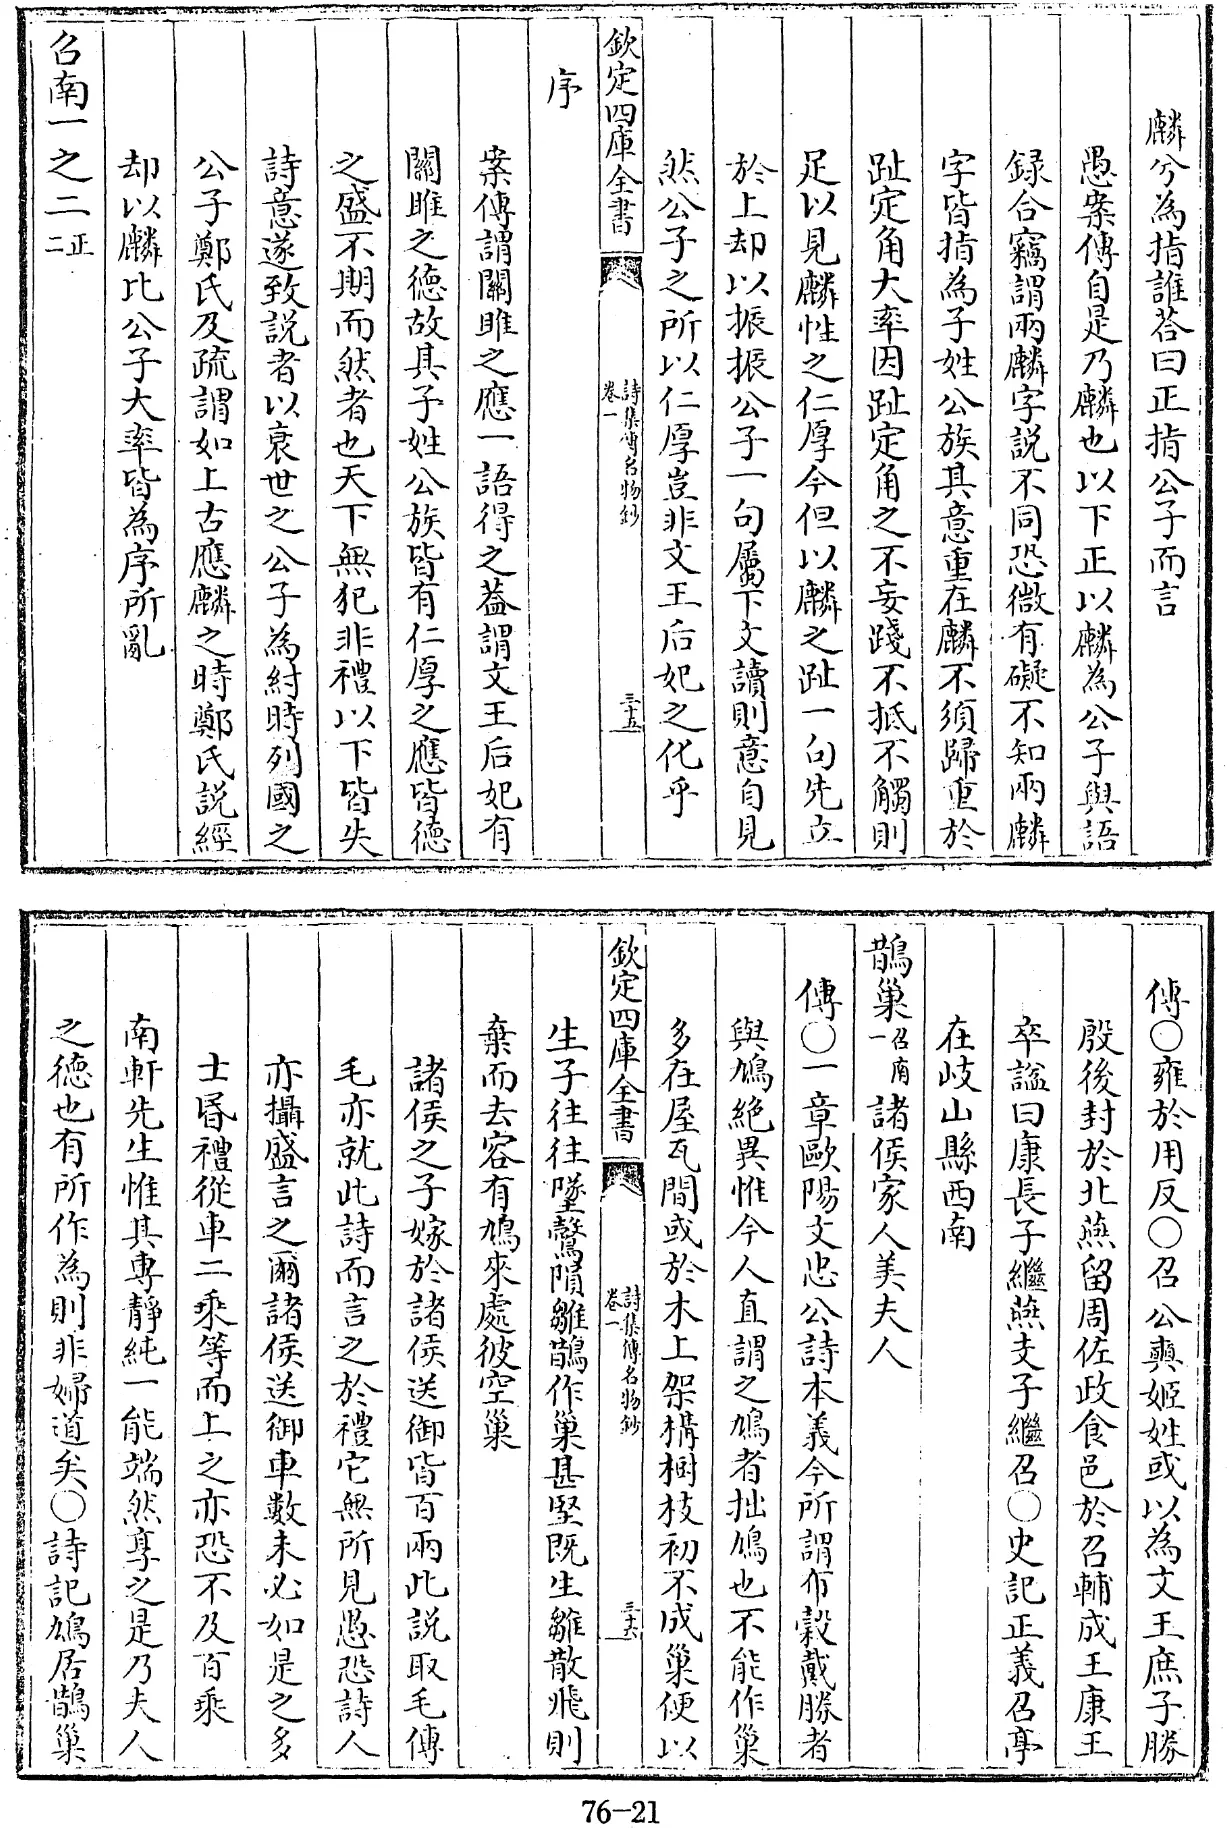 麟兮為指誰荅曰正指公子而言
愚案傳自是乃麟也以下正以麟為公子與語
録合竊謂兩麟字説不同恐㣲有礙不知兩麟
字皆指為子姓公族其意重在麟不須歸重於
趾定角大率因趾定角之不妄踐不抵不觸則
足以見麟性之仁厚今但以麟之趾一句先立
於上却以振振公子一句屬下文讀則意自見
然公子之所以仁厚豈非文王后妃之化乎
欽定四庫全書
詩集傳名物鈔
卷一
三十五
序
案傳謂關雎之應一語得之葢謂文王后妃有
關雎之德故其子姓公族皆有仁厚之應皆德
之盛不期而然者也天下無犯非禮以下皆失
詩意遂致説者以衰世之公子為紂時列國之
公子鄭氏及疏謂如上古應麟之時鄭氏説經
却以麟比公子大率皆為序所亂
召南一之二正
二
傳○雍於用反○召公奭姬姓或以為文王庶子勝
殷後封於北燕留周佐政食邑於召輔成王康王
卒諡曰康長子繼燕支子繼召○史記正義召亭
在岐山縣西南
鵲巢召南一諸侯家人美夫人
傳○一章歐陽文忠公詩本義今所謂布穀戴勝者
與鳩絶異惟今人直謂之鳩者拙鳩也不能作巢
多在屋瓦間或於木上架構樹枝初不成巢便以
欽定四庫全書
詩集傳名物鈔
卷一
三十六
生子往往墜鷇隕雛鵲作巢甚堅既生雛散飛則
棄而去容有鳩來處彼空巢
諸侯之子嫁於諸侯送御皆百兩此説取毛傳
毛亦就此詩而言之於禮它無所見愚恐詩人
亦攝盛言之爾諸侯送御車數未必如是之多
士昏禮從車二乘等而上之亦恐不及百乘
南軒先生惟其專靜純一能端然享之是乃夫人
之德也有所作為則非婦道矣○詩記鳩居鵲巢
76-21